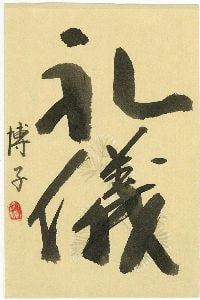 礼儀
博子